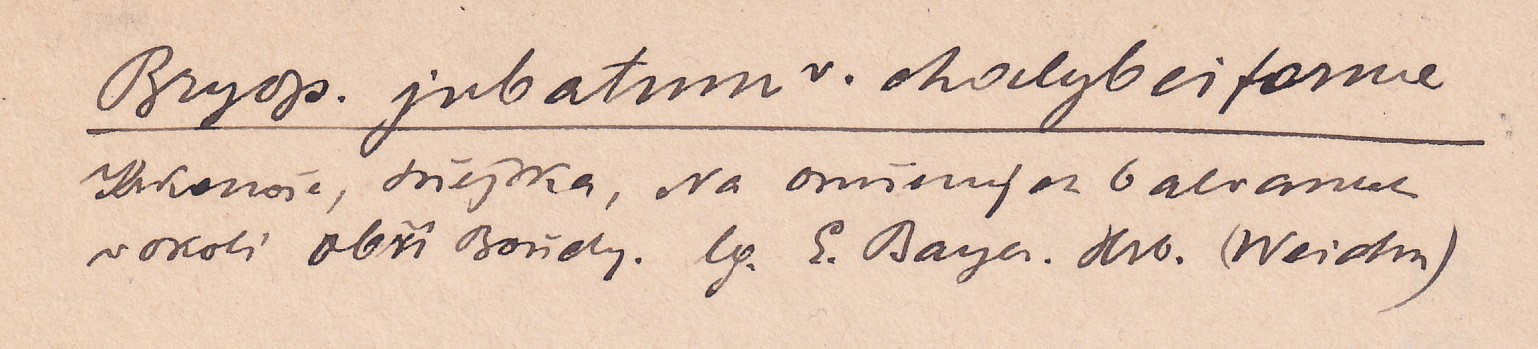 Bryop. jubatum v. chalybeiforme
Krkonoše, Sněžka, Na omšených balvanech
v okolí obří Boudy. lg. E. Bayer. Hrb. (Weidm)